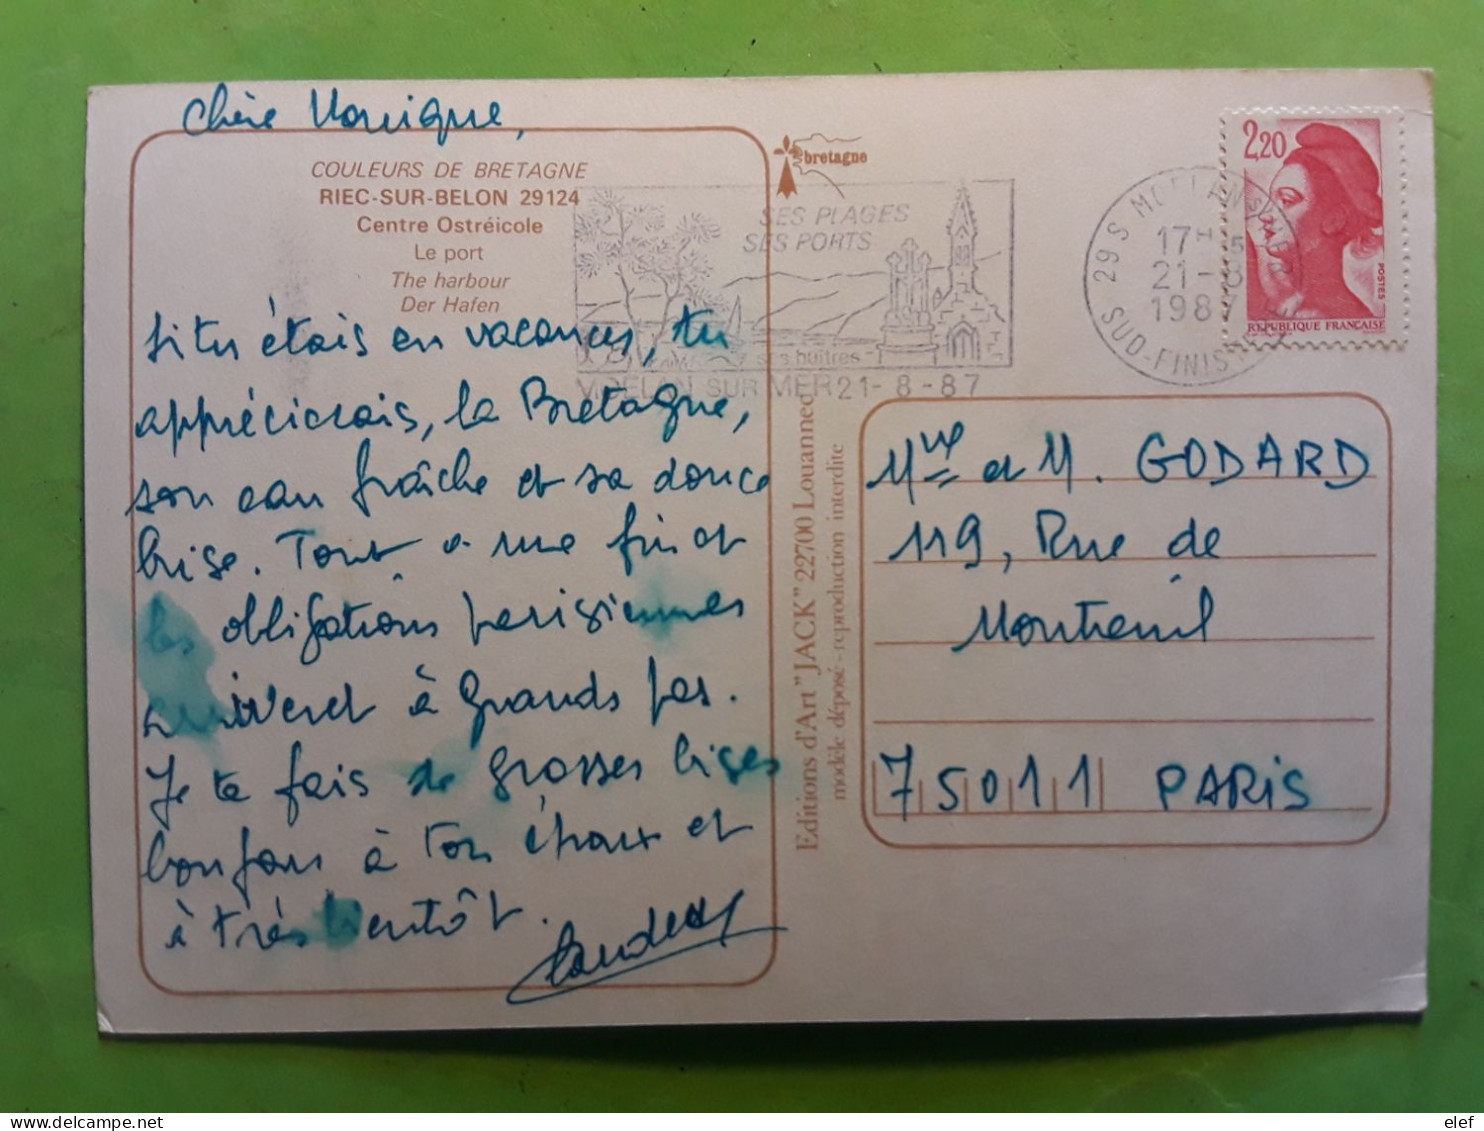 Chère Monique,
COULEURS DE BRETAGNE
RIEC-SUR-BELON 29124
Centre Ostréicole
Le port
The harbour
Der Hafen
si tu étais en vacances, tu
apprécierais, la Bretagne,
son eau fraîche et sa douce
brise. Tout a une fin et
les obligations parisiennes
arrivent à grands pas.
Je te fais de grosses bises
bonjour à ton époux et
à très bientôt.
bretagne
SES PLAGES
SES PORTS
ses huîtres
MOELAN SUR MER 21-8-87
29S MOELAN S/MER
17H 15
21-8
1987
SUD-FINISTERE
2,20
POSTES
REPUBLIQUE FRANÇAISE
Editions d'Art "JACK" 22700 Louannec
modèle déposé - reproduction interdite
Mme et M. GODARD
119, Rue de
Montreuil
75011 PARIS
elef